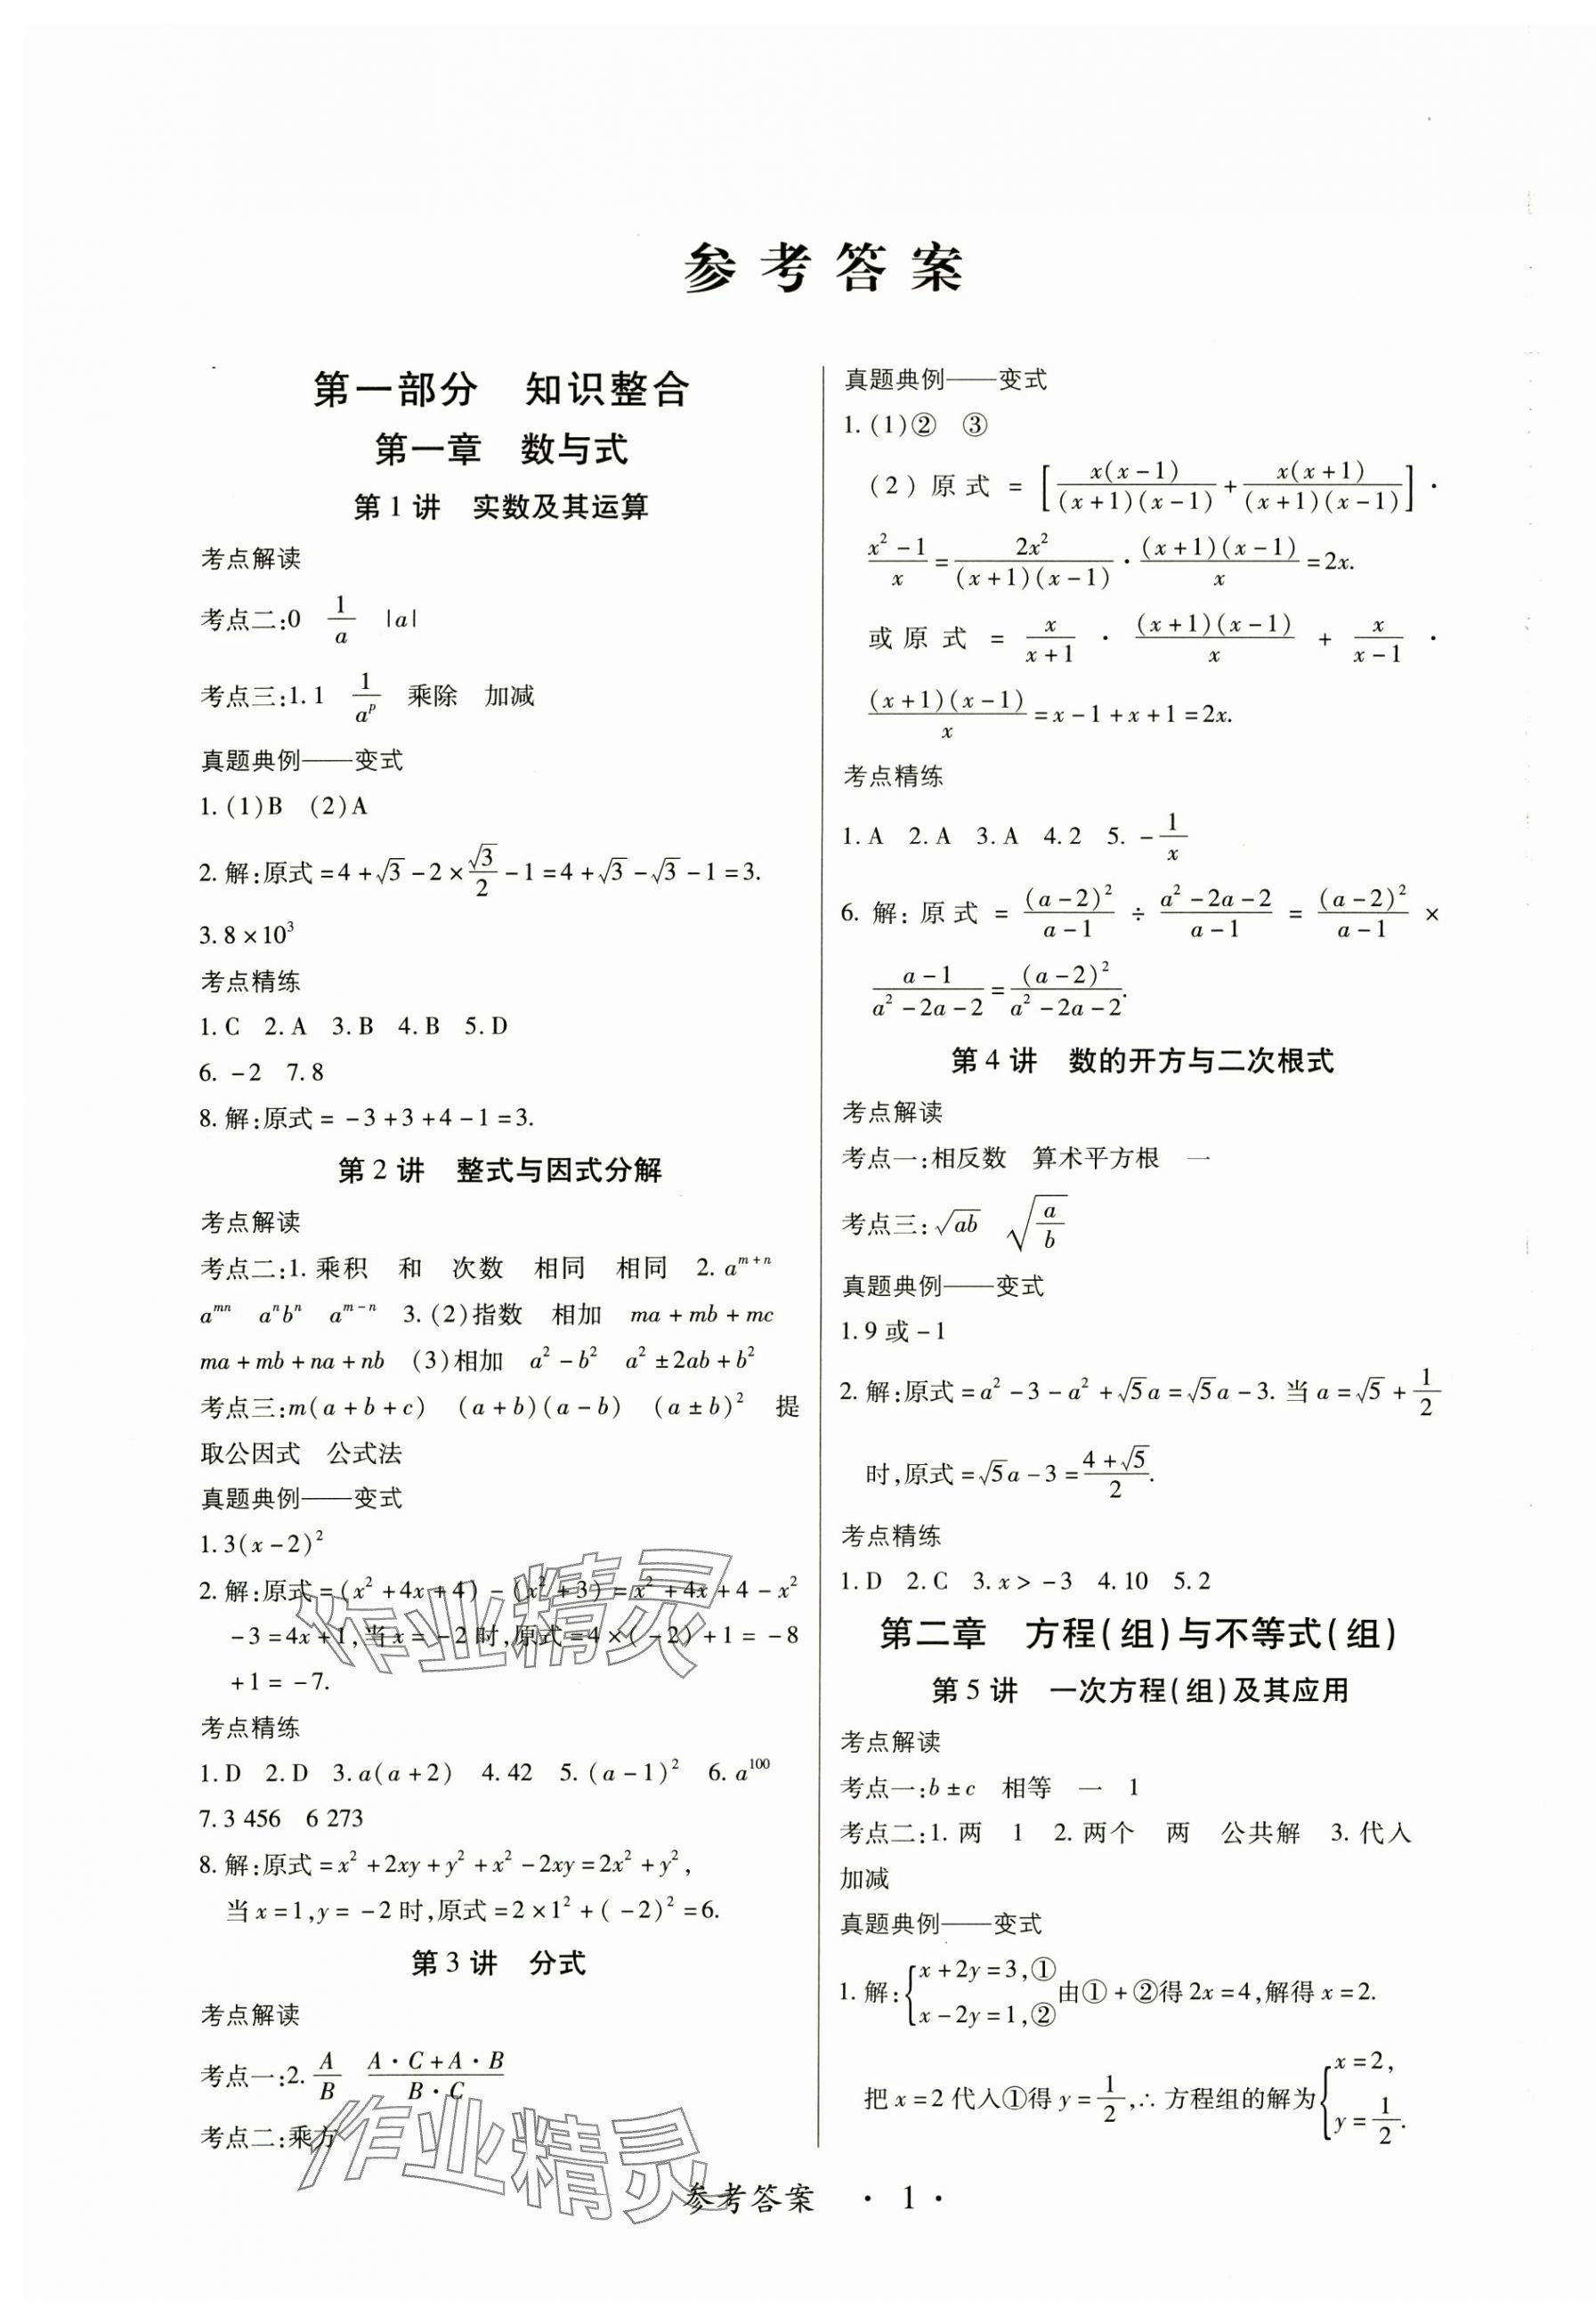 参考答案
第一部分 知识整合
第一章 数与式
第1讲 实数及其运算
考点解读
考点二:0 $\frac{1}{a}$ |a|
考点三:1. 1 $\frac{1}{a^p}$ 乘除 加减
真题典例——变式
1. (1)B (2)A
2. 解:原式=4+√3-2×$\frac{\sqrt{3}}{2}$-1=4+√3-√3-1=3.
3. 8×10³
考点精练
1. C 2. A 3. B 4. B 5. D
6. -2 7. 8
8. 解:原式=-3+3+4-1=3.
第2讲 整式与因式分解
考点解读
考点二:1. 乘积 和 次数 相同 相同 2. $a^{m+n}$
$a^{mn}$ $a^n b^n$ $a^{m-n}$ 3. (2)指数 相加 ma+mb+mc
ma+mb+na+nb (3)相加 a²-b² a²±2ab+b²
考点三:m(a+b+c) (a+b)(a-b) (a±b)² 提
取公因式 公式法
真题典例——变式
1. 3(x-2)²
2. 解:原式=(x²+4x+4)-(x²+3)=x²+4x+4-x²
-3=4x+1,当x=-2时,原式=4×(-2)+1=-8
+1=-7.
考点精练
1. D 2. D 3. a(a+2) 4. 42 5. (a-1)² 6. $a^{100}$
7. 3 456 6 273
8. 解:原式=x²+2xy+y²+x²-2xy=2x²+y²,
当x=1,y=-2时,原式=2×1²+(-2)²=6.
第3讲 分式
考点解读
考点一:2. $\frac{A}{B}$ $\frac{A·C+A·B}{B·C}$
考点二:乘方
真题典例——变式
1. (1)② ③
(2)原式=$\left[\frac{x(x-1)}{(x+1)(x-1)}+\frac{x(x+1)}{(x+1)(x-1)}\right]$·
$\frac{x^2-1}{x}=\frac{2x^2}{(x+1)(x-1)}·\frac{(x+1)(x-1)}{x}$=2x.
或原式=$\frac{x}{x+1}·\frac{(x+1)(x-1)}{x}+\frac{x}{x-1}$·
$\frac{(x+1)(x-1)}{x}$=x-1+x+1=2x.
考点精练
1. A 2. A 3. A 4. 2 5. $-\frac{1}{x}$
6. 解:原式=$\frac{(a-2)^2}{a-1}÷\frac{a^2-2a-2}{a-1}=\frac{(a-2)^2}{a-1}$×
$\frac{a-1}{a^2-2a-2}=\frac{(a-2)^2}{a^2-2a-2}$.
第4讲 数的开方与二次根式
考点解读
考点一:相反数 算术平方根 一
考点三:$\sqrt{ab}$ $\sqrt{\frac{a}{b}}$
真题典例——变式
1. 9或-1
2. 解:原式=a²-3-a²+√5a=√5a-3. 当a=√5+$\frac{1}{2}$
时,原式=√5a-3=$\frac{4+\sqrt{5}}{2}$.
考点精练
1. D 2. C 3. x>-3 4. 10 5. 2
第二章 方程(组)与不等式(组)
第5讲 一次方程(组)及其应用
考点解读
考点一:b±c 相等 一 1
考点二:1. 两 1 2. 两个 两 公共解 3. 代入
加减
真题典例——变式
1. 解:$\begin{cases}x+2y=3,①\\x-2y=1,②\end{cases}$由①+②得2x=4,解得x=2.
把x=2代入①得y=$\frac{1}{2}$,∴方程组的解为$\begin{cases}x=2,\\y=\frac{1}{2}.\end{cases}$
参考答案 ·1·
作业精灵
作业精灵